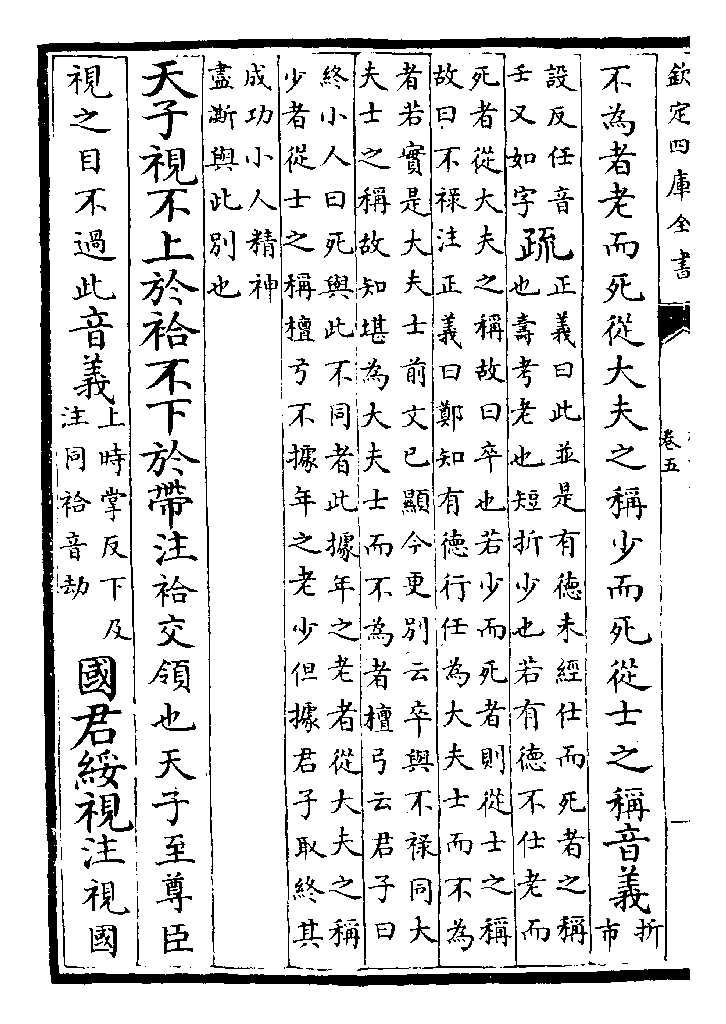 欽定四庫全書
卷五
不為者老而死從大夫之稱少而死從士之稱音義折
市
設反任音
壬又如字
疏
正義曰此並是有德未經仕而死者之稱
也壽考老也短折少也若有德不仕老而
死者從大夫之稱故曰卒也若少而死者則從士之稱
故曰不祿注正義曰鄭知有德行任為大夫士而不為
者若實是大夫士前文已顯今更別云卒與不祿同大
夫士之稱故知堪為大夫士而不為者檀弓云君子曰
終小人曰死與此不同者此據年之老者從大夫之稱
少者從士之稱檀弓不據年之老少但據君子取終其
成功小人精神
盡澌與此別也
天子視不上於袷不下於帶注袷交領也天子至尊臣
視之目不過此音義
上時掌反下及
注同袷音劫
國君綏視注視國